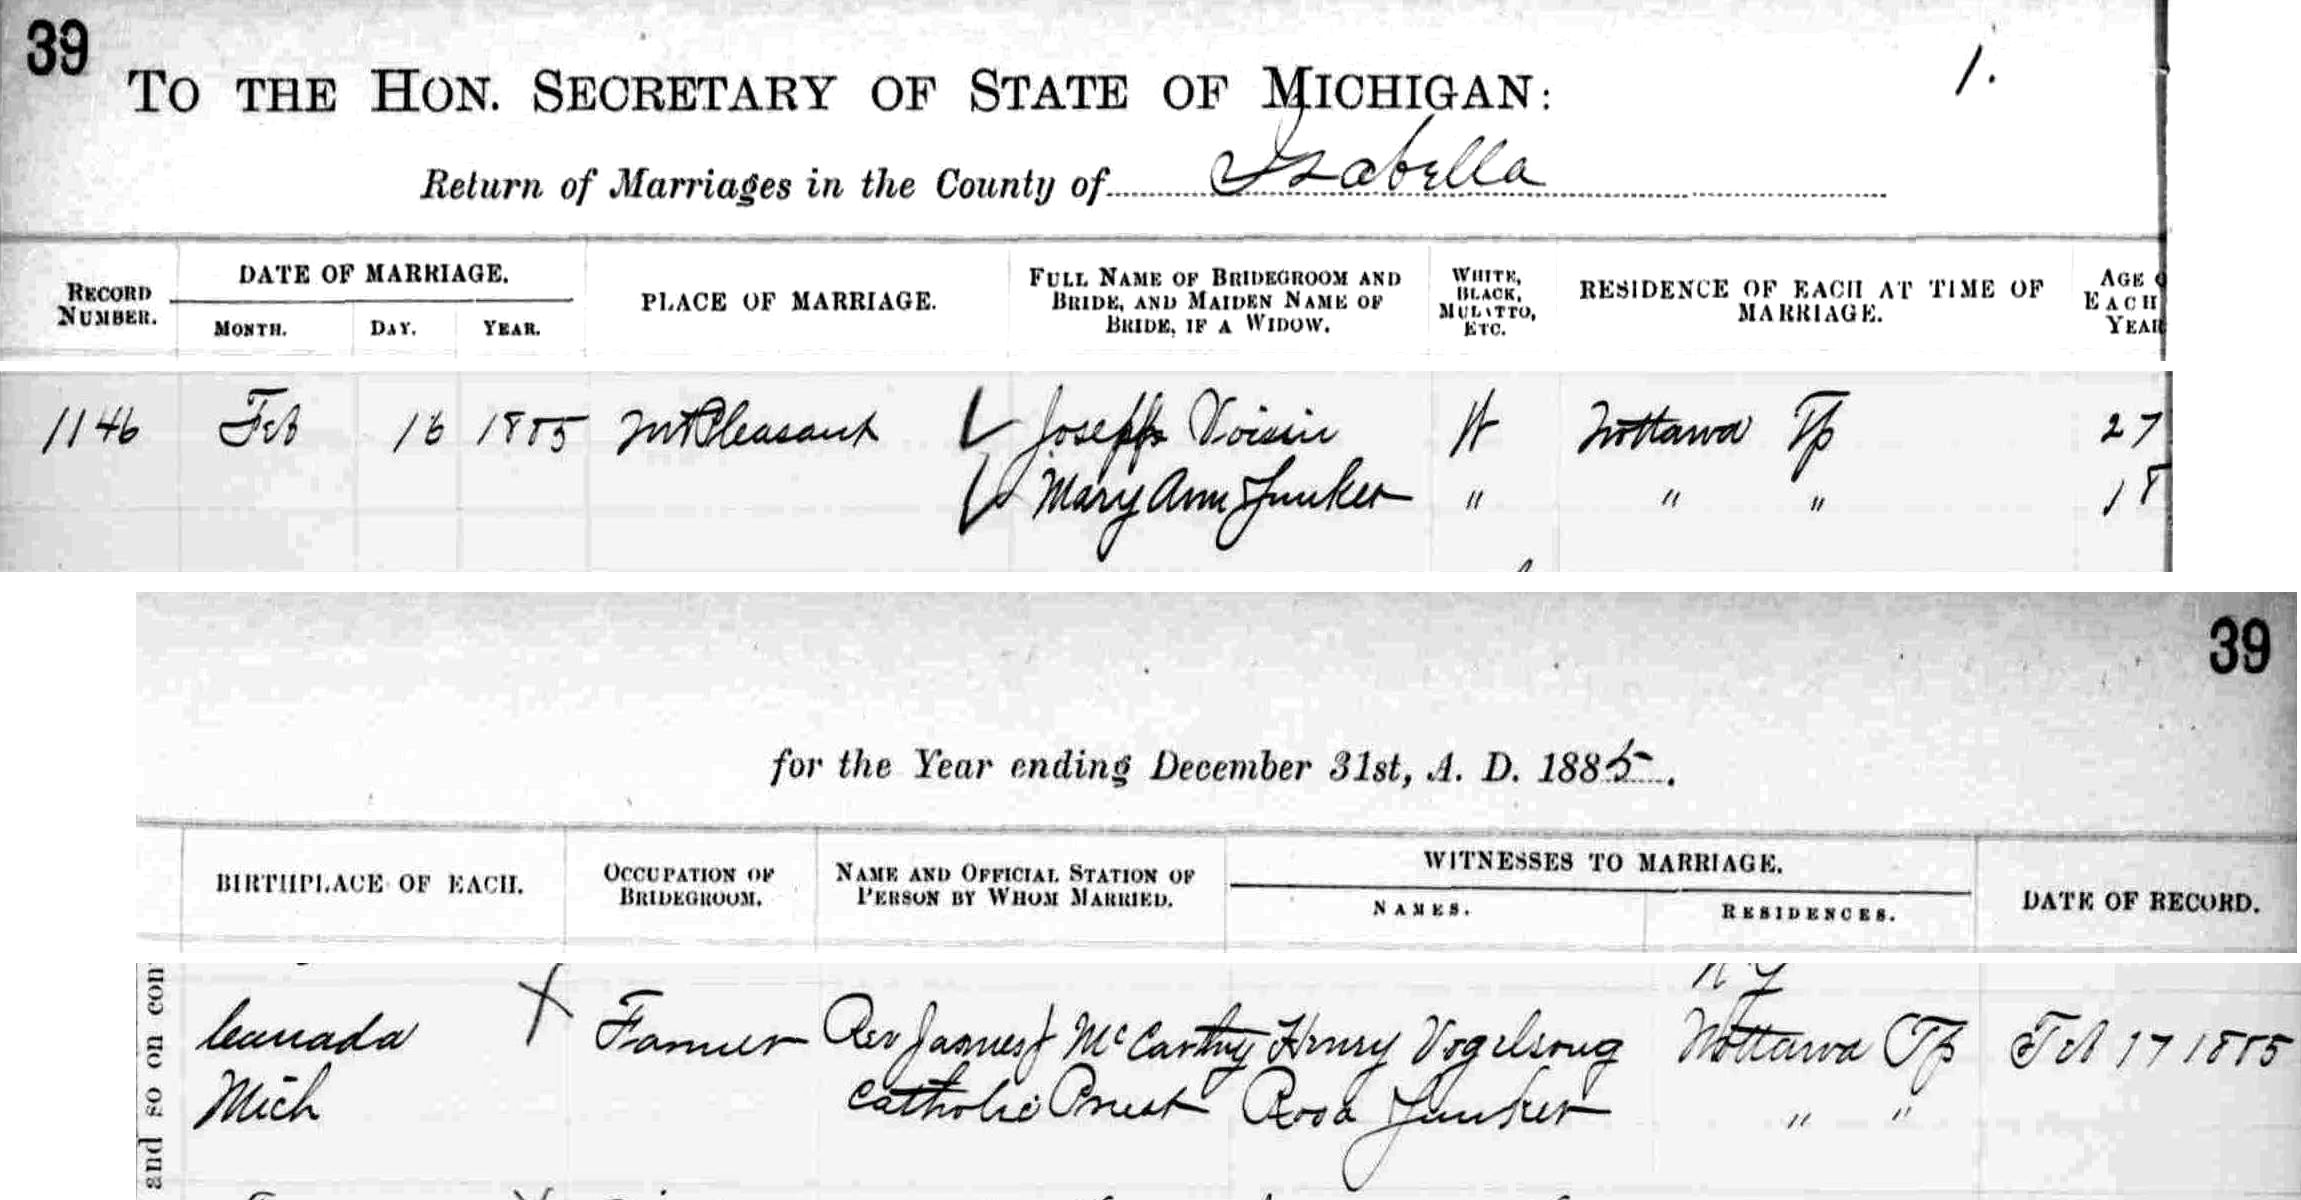 39
TO THE HON. SECRETARY OF STATE OF MICHIGAN:
1.
Return of Marriages in the County of Isabella
RECORD NUMBER.
DATE OF MARRIAGE.
MONTH.
DAY.
YEAR.
PLACE OF MARRIAGE.
FULL NAME OF BRIDEGROOM AND
BRIDE, AND MAIDEN NAME OF
BRIDE, IF A WIDOW.
WHITE,
BLACK,
MULATTO,
ETC.
RESIDENCE OF EACH AT TIME OF
MARRIAGE.
AGE
EACH
YEAR
1146 Feb 16 1885 Mt Pleasant Joseph Voisin W Nottawa Tp 27
Mary Ann Junker " " " 18
39
for the Year ending December 31st, A. D. 1885.
BIRTHPLACE OF EACH.
OCCUPATION OF
BRIDEGROOM.
NAME AND OFFICIAL STATION OF
PERSON BY WHOM MARRIED.
WITNESSES TO MARRIAGE.
NAMES.
RESIDENCES.
DATE OF RECORD.
and so on con
N Y
Canada X Farmer Rev James J McCarthy Henry Vogelsong Nottawa Tp Feb 17 1885
Mich Catholic Priest Rosa Junker " "